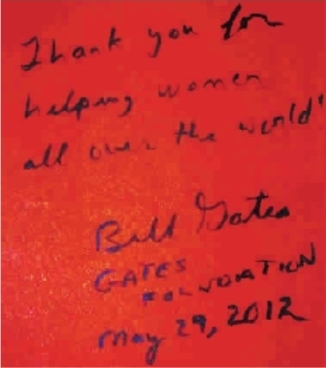 Thank you for
helping women
all over the world!
Bill Gates
GATES
FOUNDATION
May 29, 2012